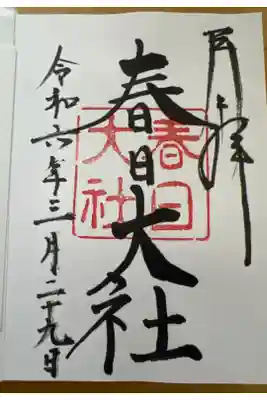 奉拝
春日大社
春日大社
令和六年三月二十九日